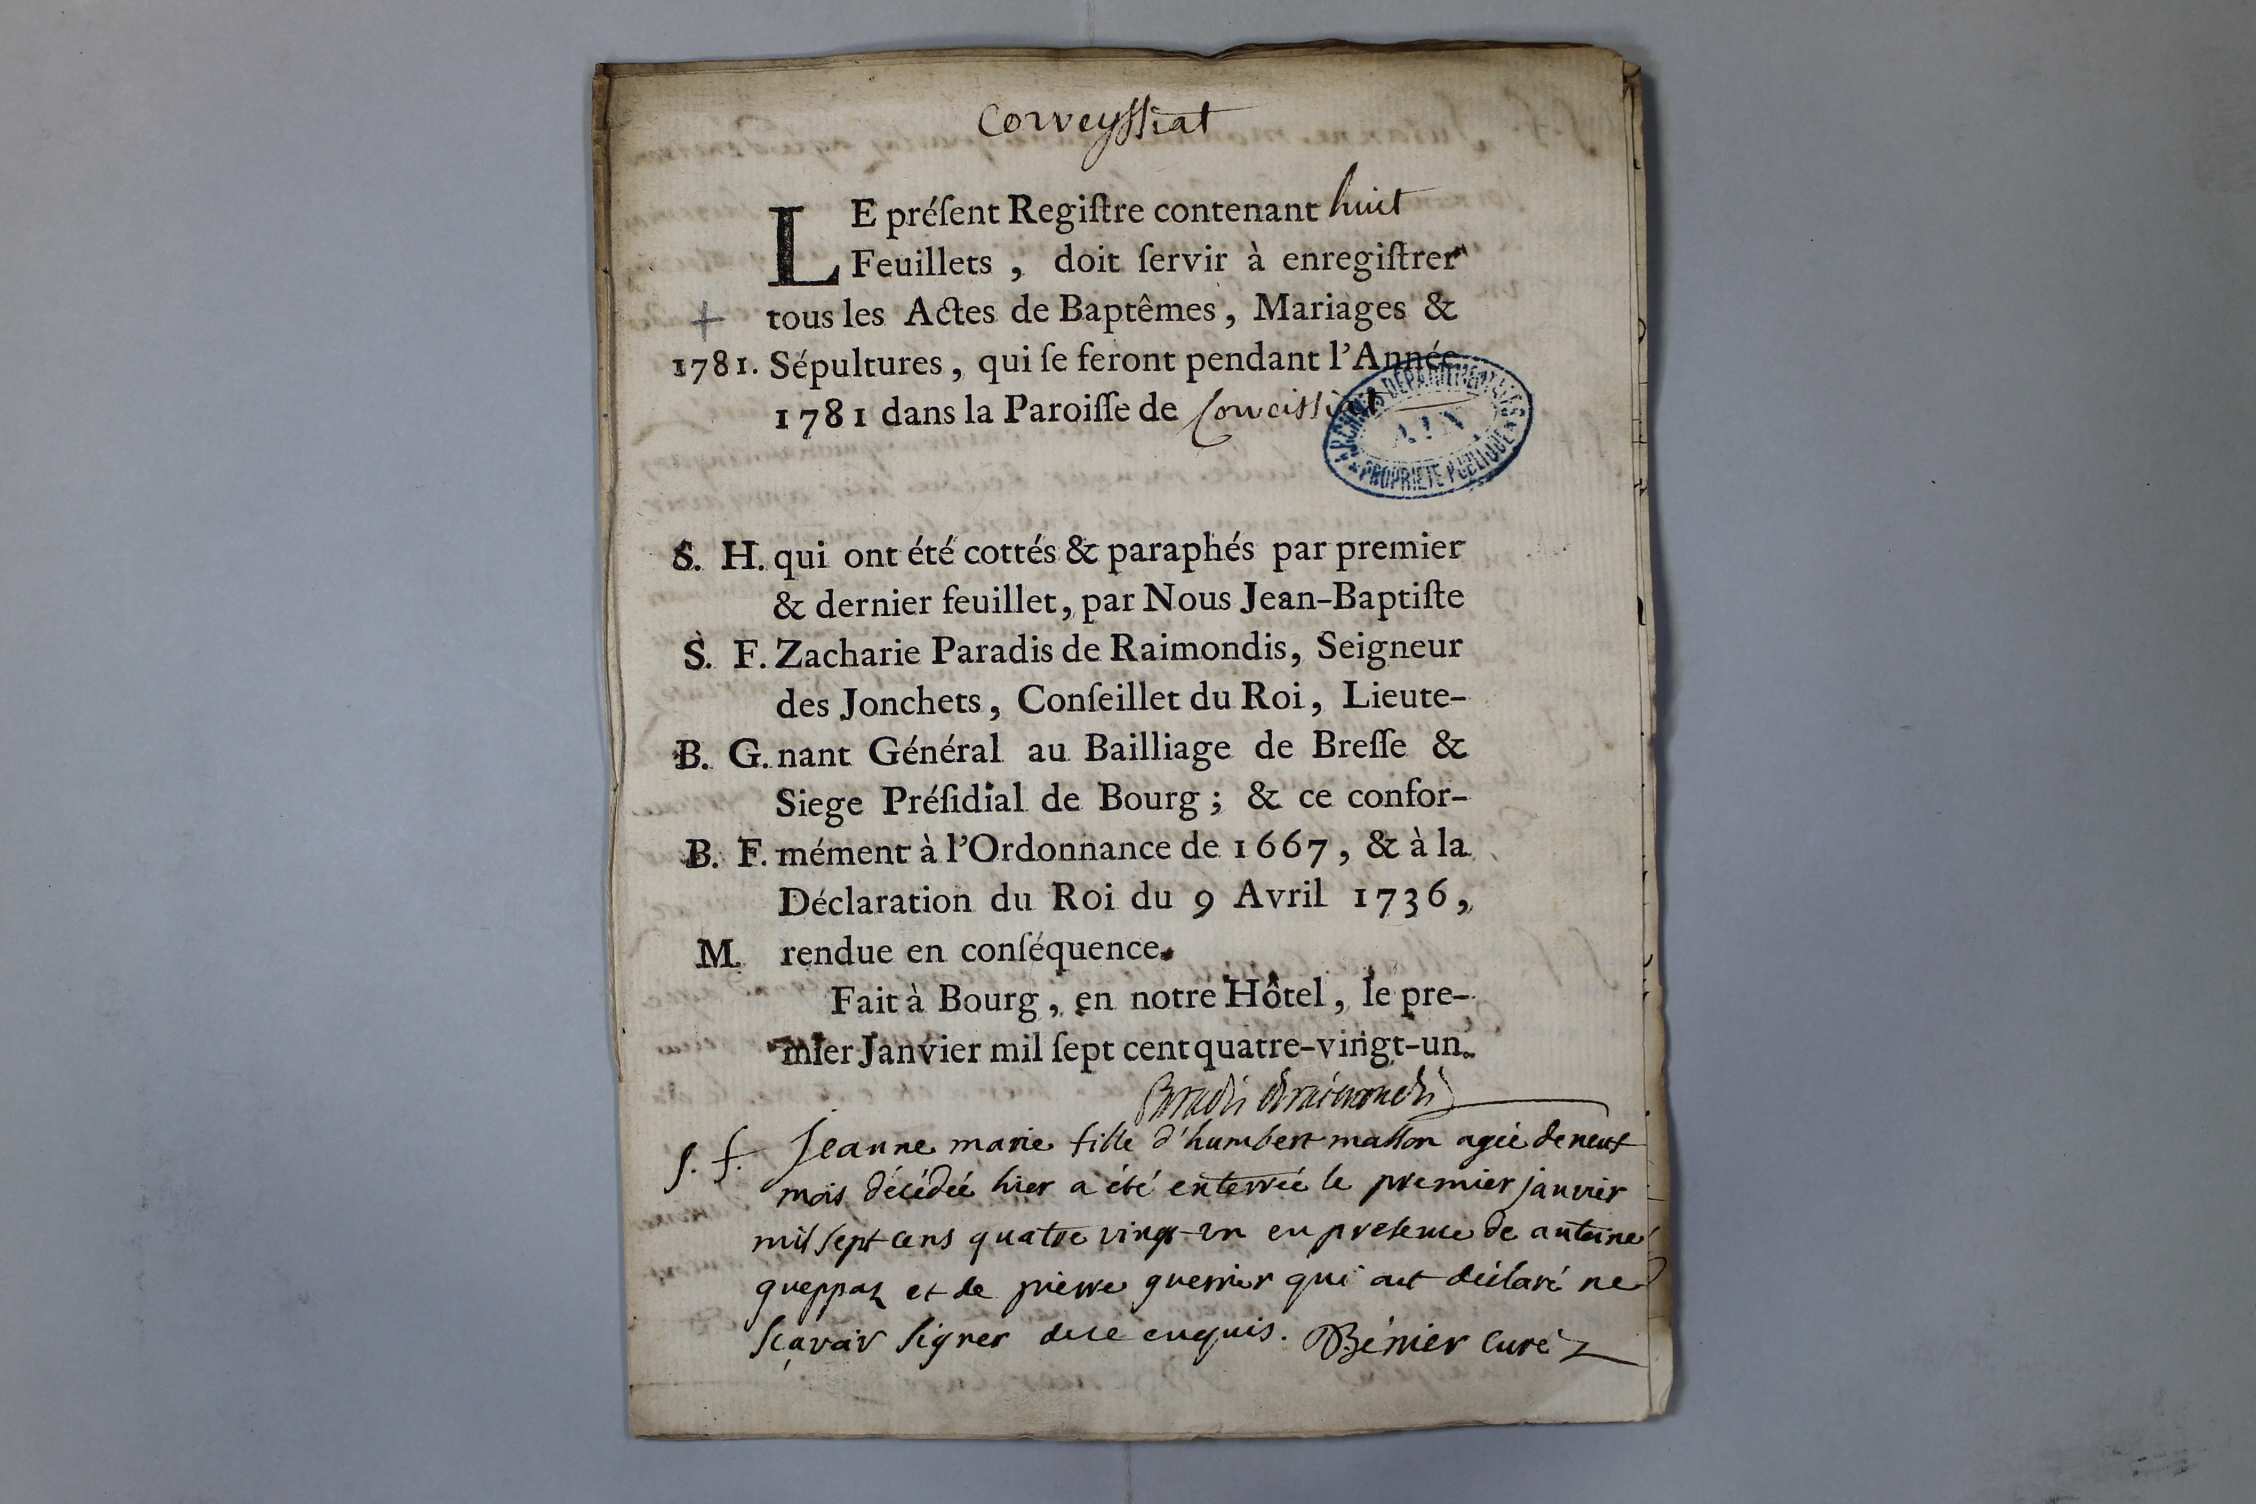 Corveyssiat
LE préſent Regiſtre contenant huit
Feuillets , doit ſervir à enregiſtrer
+ tous les Actes de Baptêmes, Mariages &
1781. Sépultures, qui ſe feront pendant l'Année
1781 dans la Paroiſſe de Corveissiat
ARCHIVES DÉPARTEMENTALES
AIN
PROPRIÉTÉ PUBLIQUE
S. H. qui ont été cottés & paraphés par premier
& dernier feuillet, par Nous Jean-Baptiſte
S. F. Zacharie Paradis de Raimondis, Seigneur
des Jonchets, Conſeillet du Roi, Lieute-
B. G. nant Général au Bailliage de Breſſe &
Siege Préſidial de Bourg ; & ce confor-
B. F. mément à l'Ordonnance de 1667, & à la
Déclaration du Roi du 9 Avril 1736,
M. rendue en conſéquence.
Fait à Bourg, en notre Hôtel, le pre-
mier Janvier mil ſept cent quatre-vingt-un.
Paradis de raimondis
S. f. Jeanne marie fille d'humbert maſſon agée de neuf
mois décédée hier a été enterrée le premier janvier
mil sept cens quatre vingt-un en presence de antoine
gueppaz et de pierre guerrier qui ont déclaré ne
sçavoir signer de ce enquis. Bénier curé